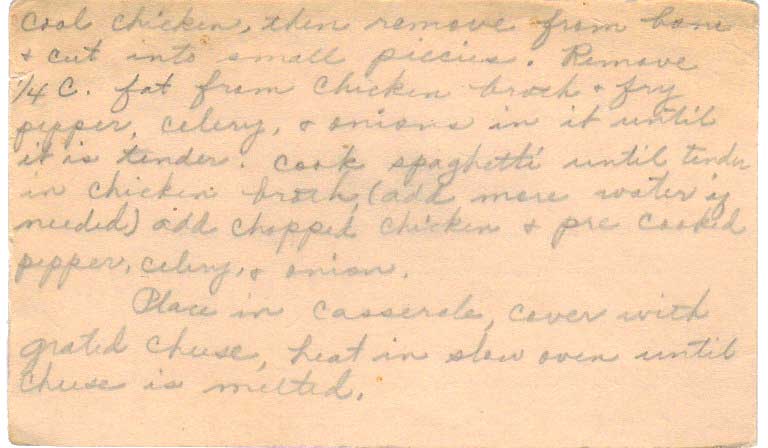 Cool chicken, then remove from bone
& cut into small piecies. Remove
1/4 C. fat from chicken broth & fry
pepper, celery, & onions in it until
it is tender. Cook spaghetti until tender
in chicken broth (add more water if
needed) add chopped chicken & pre cooked
pepper, celery, & onion.
Place in casserole, cover with
grated cheese, heat in slow oven until
cheese is melted.